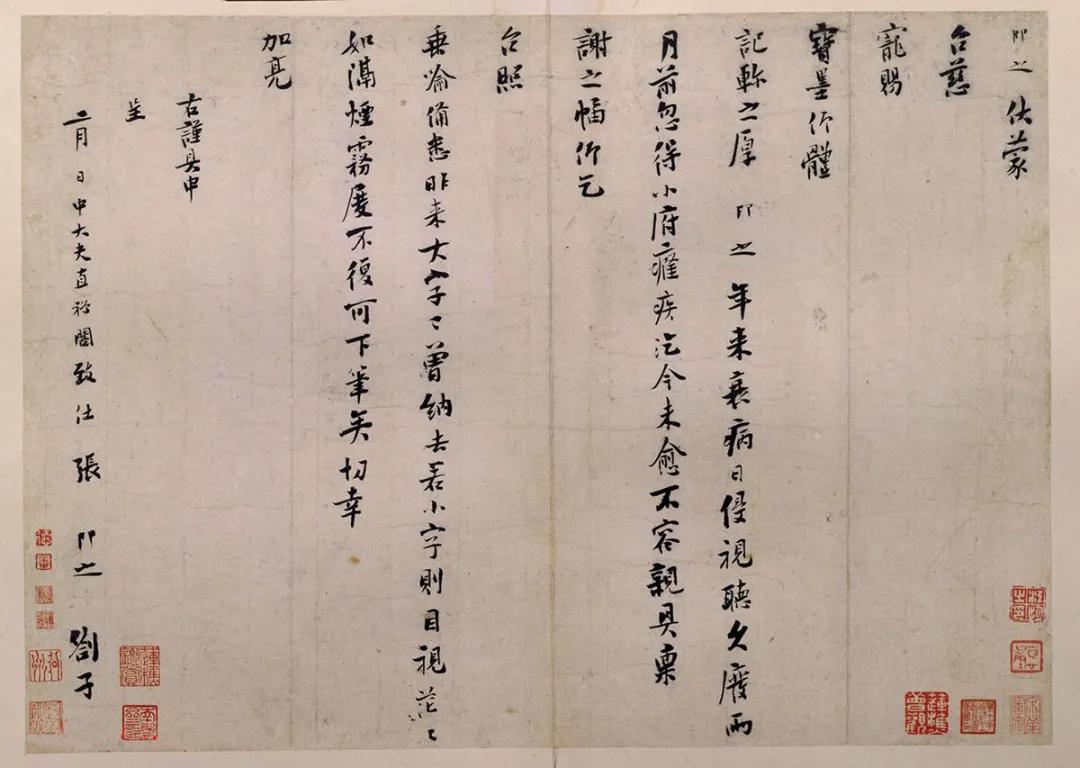 即之 伏蒙
台慈
寵賜
寶墨仰體
記齒之厚 即之 年來衰病日侵視聽久廢兩
月前忽得小府癰疾迄今未愈不容親具稟
謝之幅仰乞
台照
垂諭備悉昨來大字々曾納去若小字則目視茫々
如隔煙霧屢不復可下筆矣切幸
加亮
右謹具申
呈
二月 日中大夫直祕閣致仕 張 即之 劄子